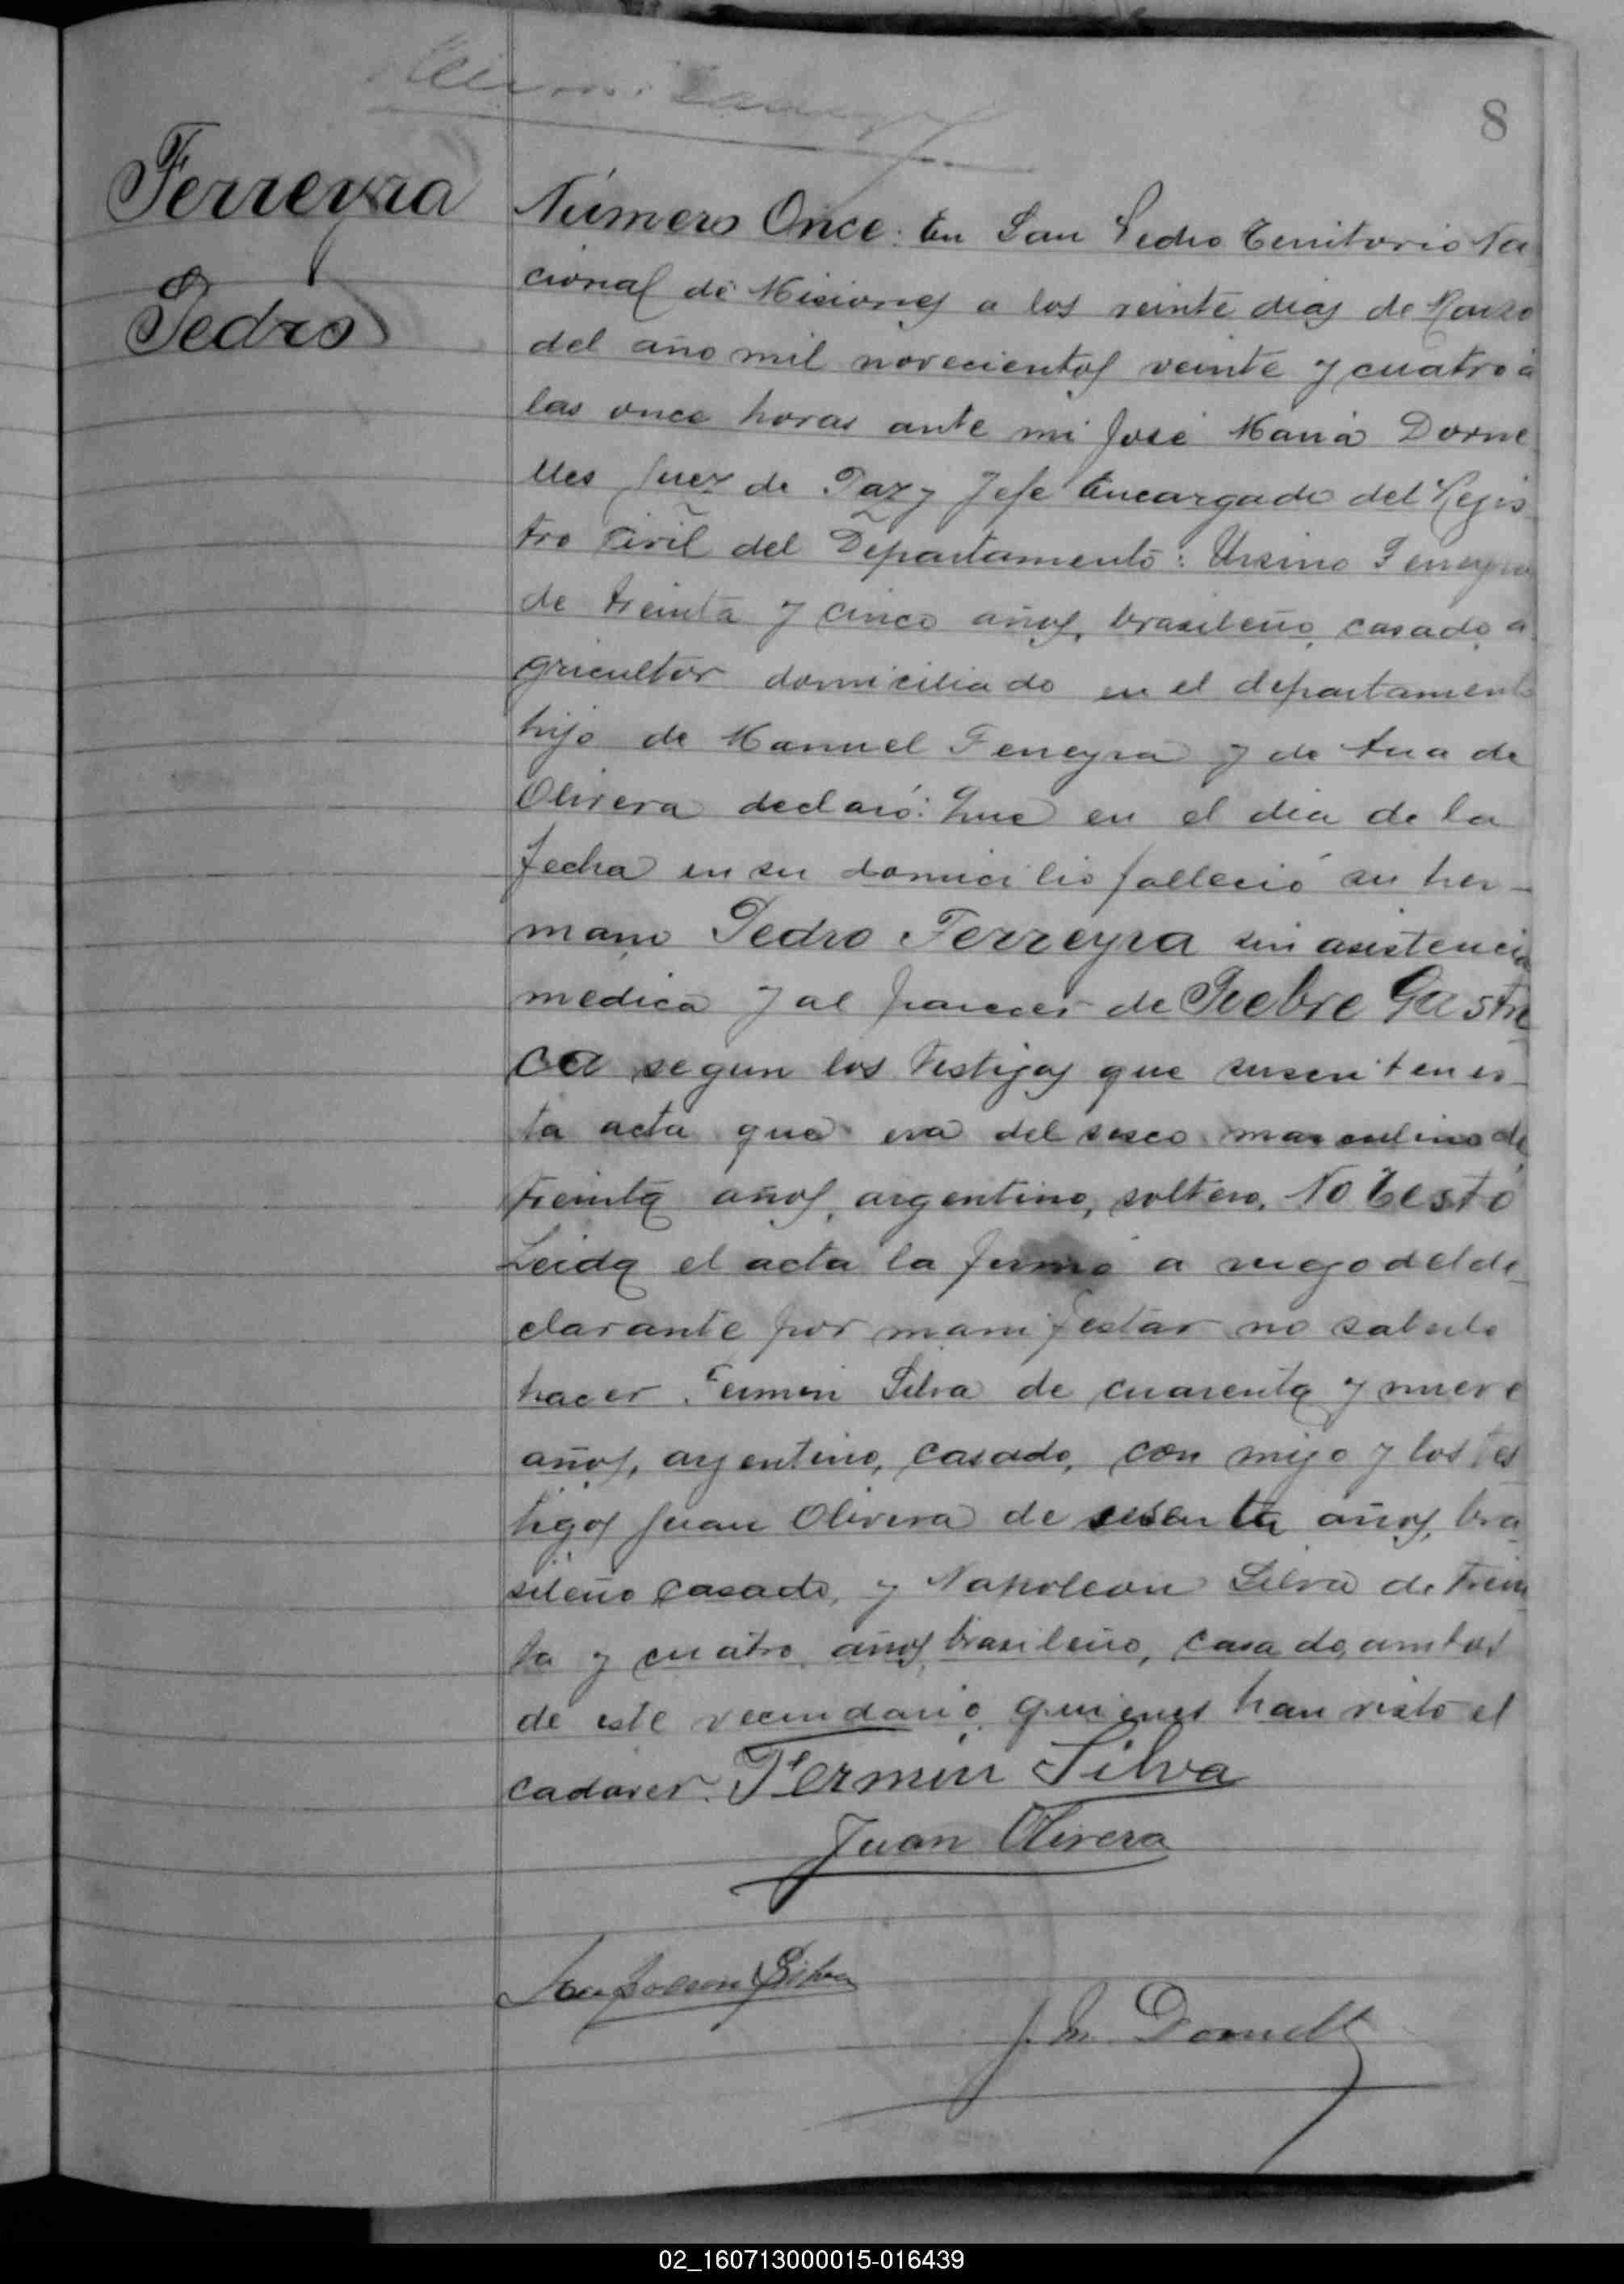 8
Ferreyra
Pedro
Número Once: En San Pedro Territorio Na
cional de Misiones a los veinte dias de Marzo
del año mil novecientos veinte y cuatro á
las once horas ante mi José Maria Dorne
lles Juez de Paz y Jefe Encargado del Regis
tro Civil del Departamento: Ursino Ferreyra
de treinta y cinco años, brasileño, casado, a
gricultor domiciliado en el departamento
hijo de Manuel Ferreyra y de Ana de
Olivera declaró: Que en el dia de la
fecha en su domicilio falleció su her-
mano Pedro Ferreyra sin asistencia
medica y al parecer de Fiebre Gastri
ca segun los testigos que suscriben es-
ta acta que era del sexo masculino de
treinta años, argentino, soltero. No Testó
Leida el acta la firmó a ruego del de-
clarante por manifestar no saberlo
hacer. Fermin Silva de cuarenta y nueve
años, argentino, casado, con migo y los tes
tigos Juan Olivera de sesenta años, bra
sileño casado, y Napoleon Silva de trein
ta y cuatro años brasileño, casado, ambos
de este vecindario quienes han visto el
cadaver. Fermin Silva
Juan Olivera
Napoleon Silva
J. M. Dornell
02_160713000015-016439